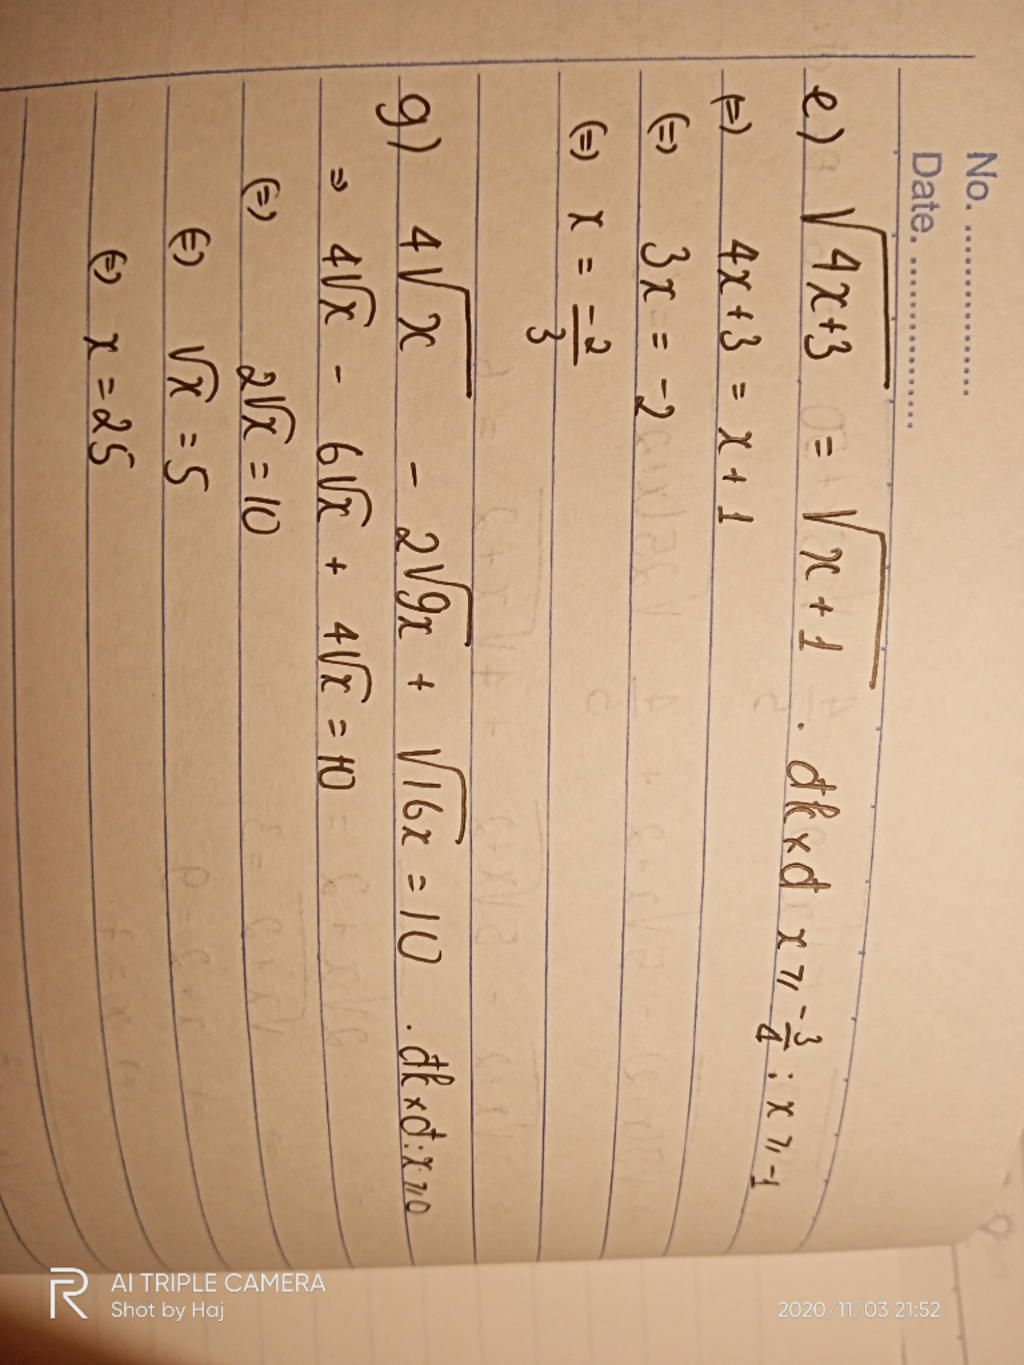 No. ................
Date. ................
e) √4x+3 = √x+1 . đkxđ x ⩾ -3/4 ; x ⩾ -1
(=) 4x+3 = x+1
(=) 3x = -2
(=) x = -2/3
g) 4√x - 2√9x + √16x = 10 . đkxđ: x ⩾ 0
⇒ 4√x - 6√x + 4√x = 10
(=) 2√x = 10
(=) √x = 5
(=) x = 25
AI TRIPLE CAMERA
Shot by Haj
2020/11/03 21:52